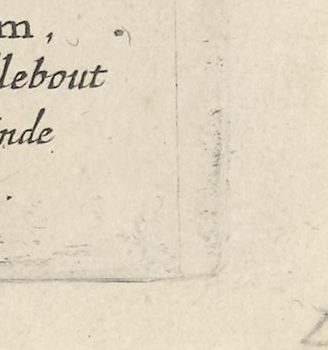 m,
lebout
nde
.